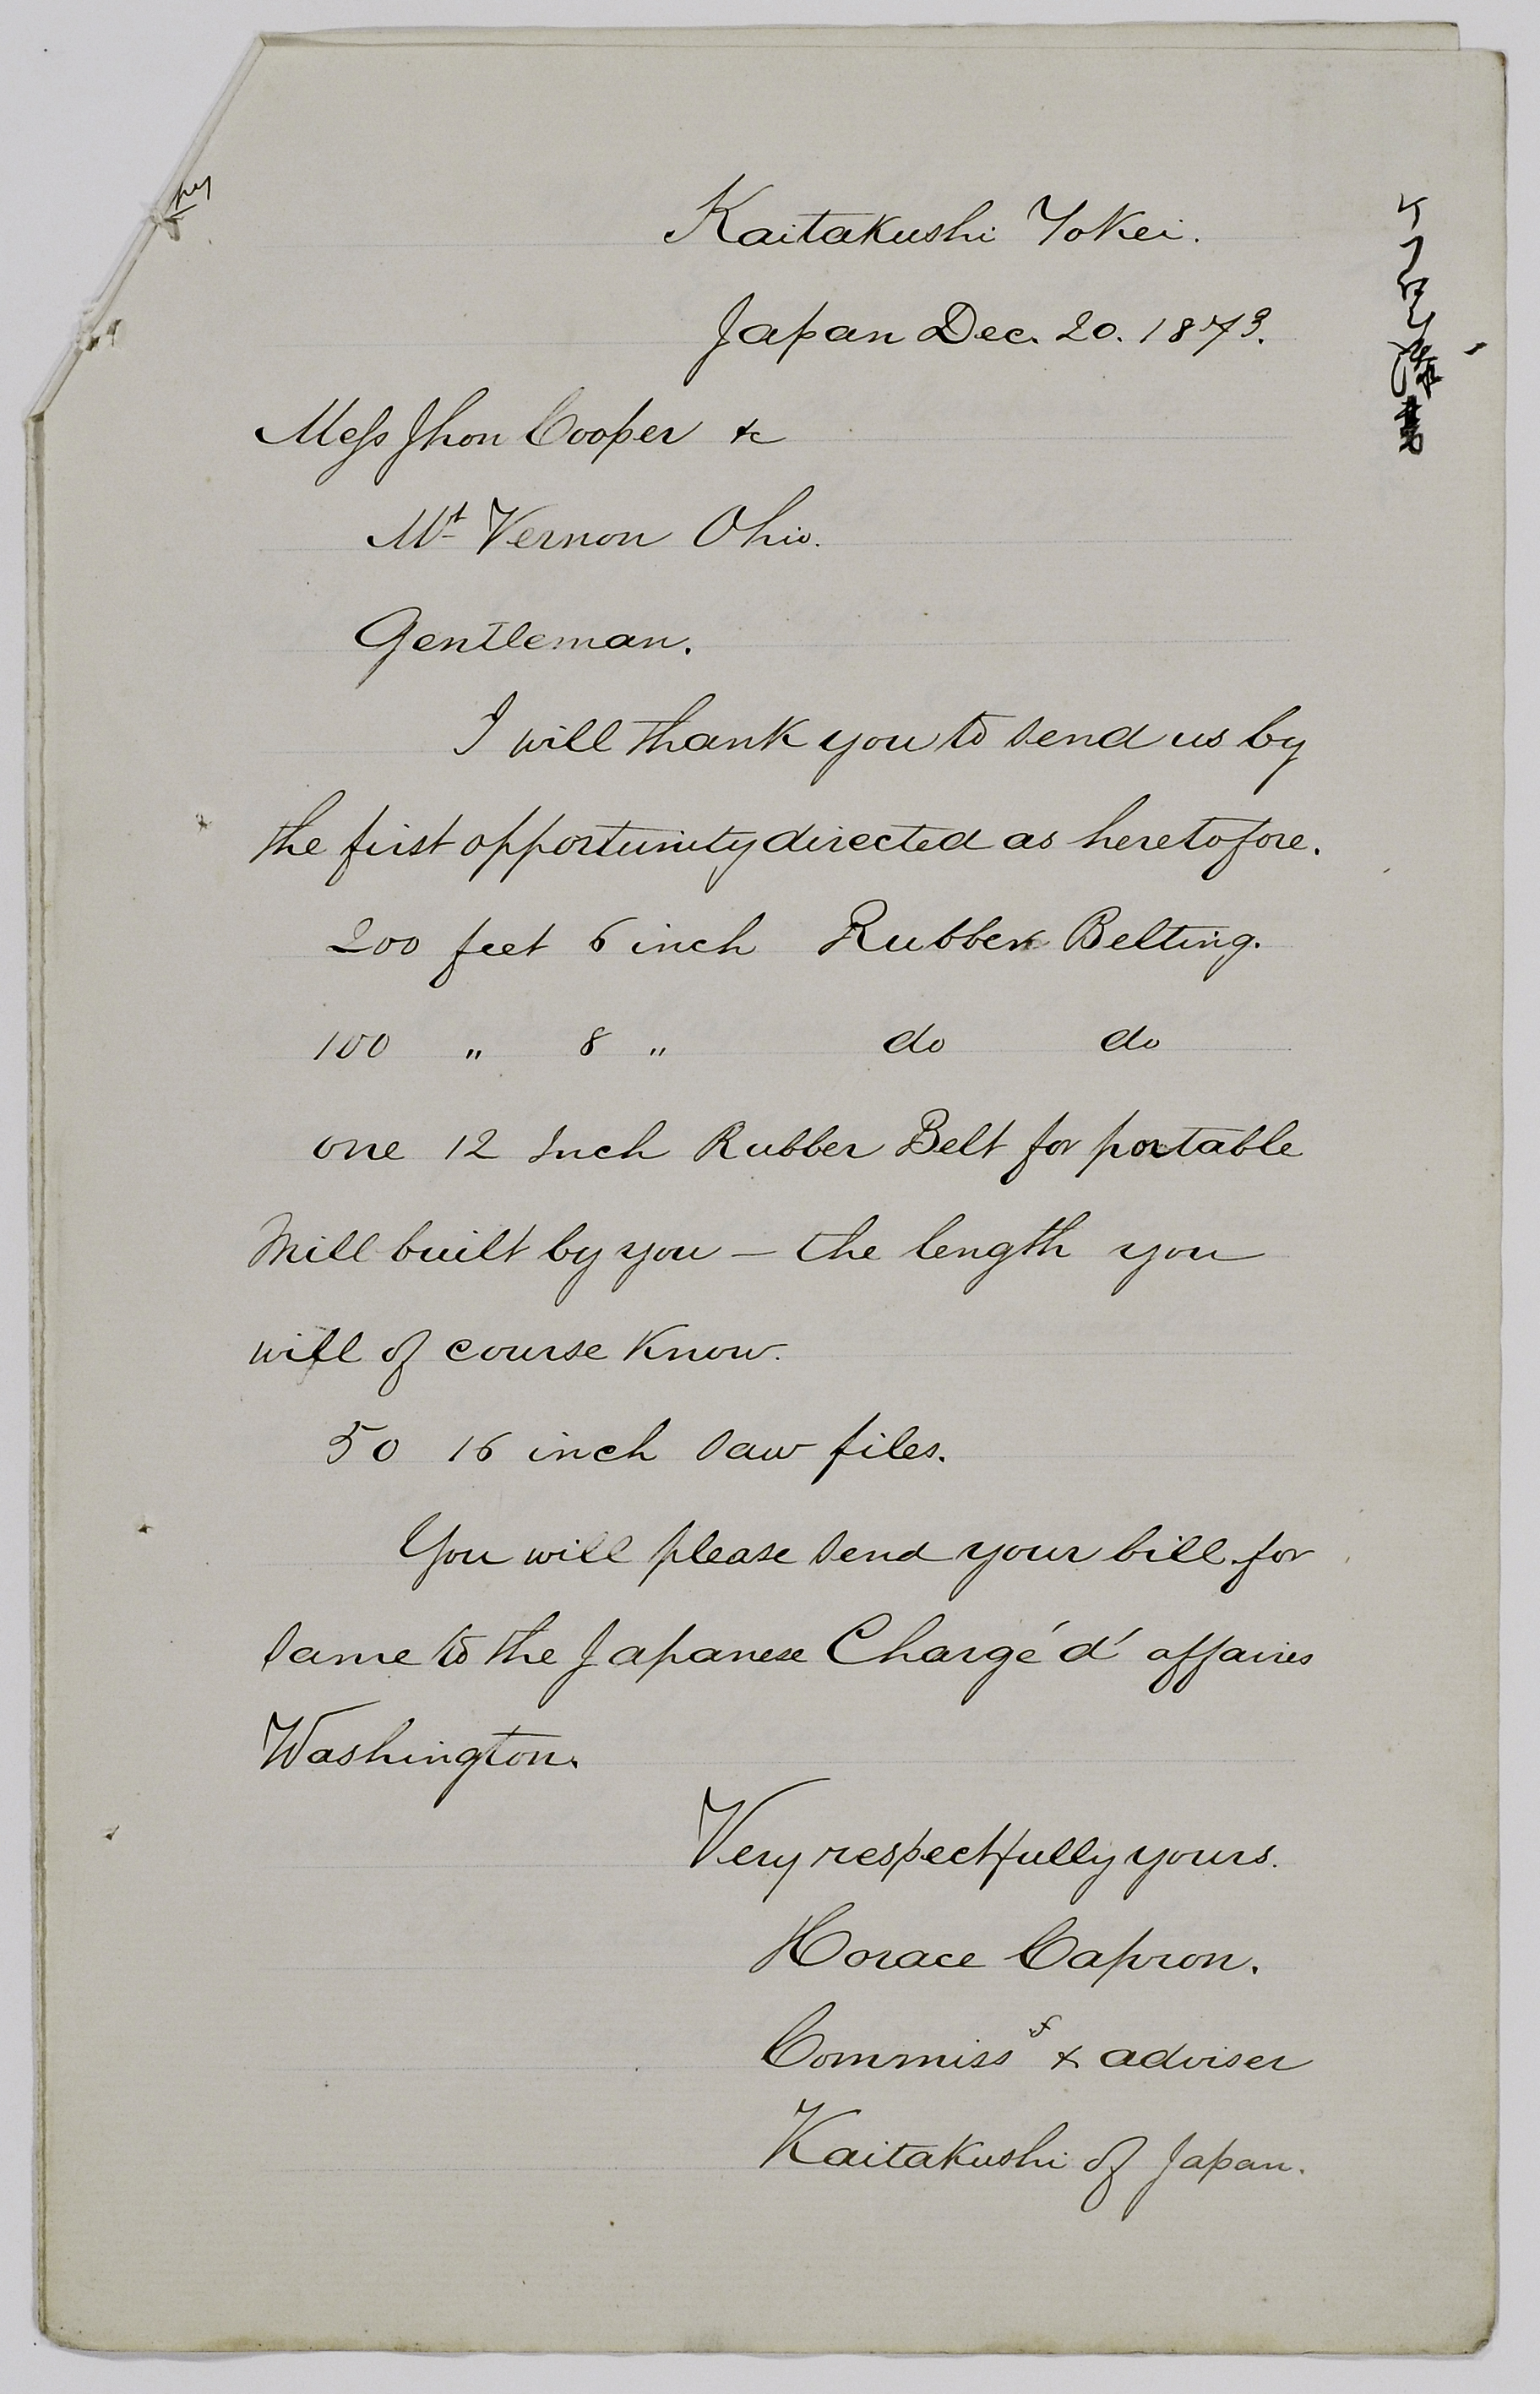 Kaitakushi Tokei.
Japan Dec. 20. 1873.
Mess Jhon Cooper &c
Mt Vernon Ohio.
Gentleman.
I will thank you to send us by
the first opportunity directed as heretofore.
200 feet 6 inch Rubber Belting.
100 " 8 " do do
one 12 Inch Rubber Belt for portable
Mill built by you – the length you
will of course know.
50 16 inch saw files.
You will please send your bill for
same to the Japanese Chargé d' affaires
Washington.
Very respectfully yours.
Horace Capron.
Commiss & adviser
Kaitakushi of Japan.